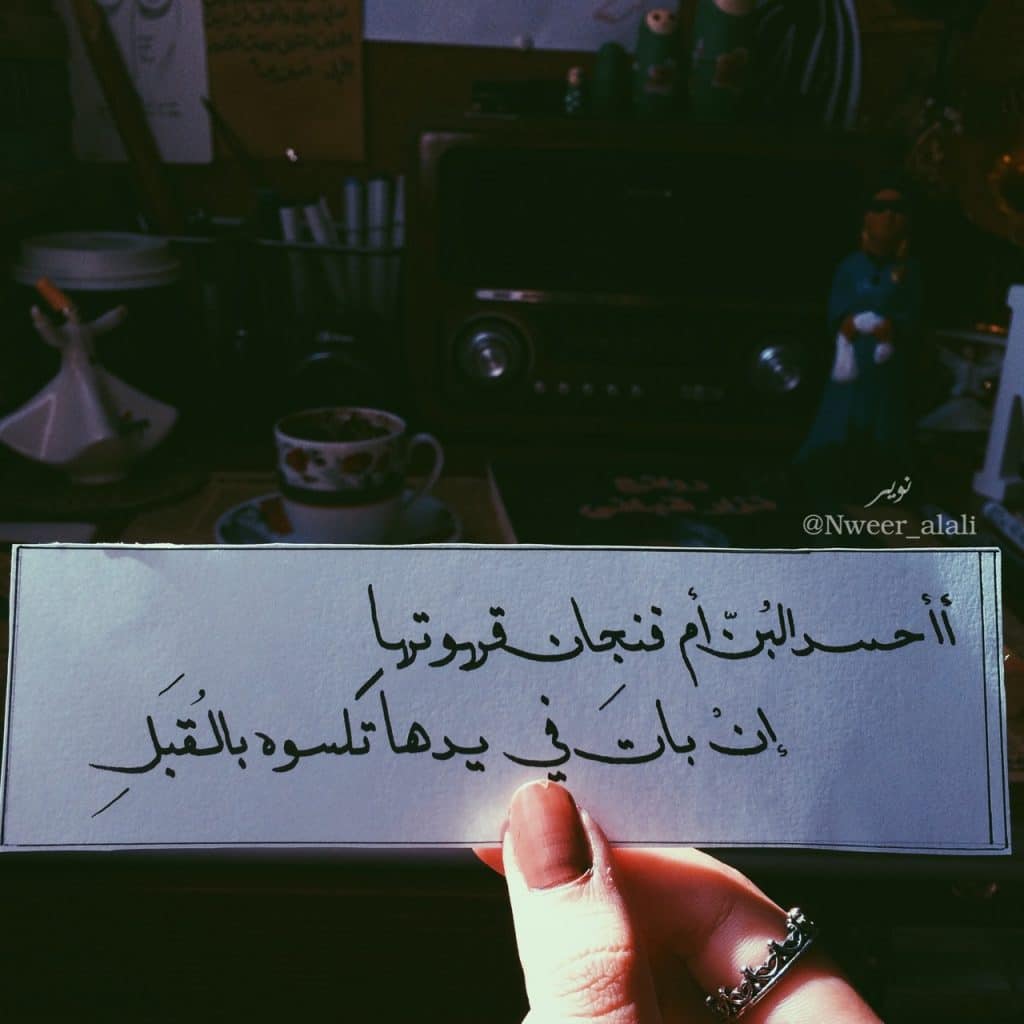 نوير
@Nweer_alali
أأحسد البُنّ أم فنجان قهوتها
إنْ باتَ في يدها تكسوه بالقُبَلِ